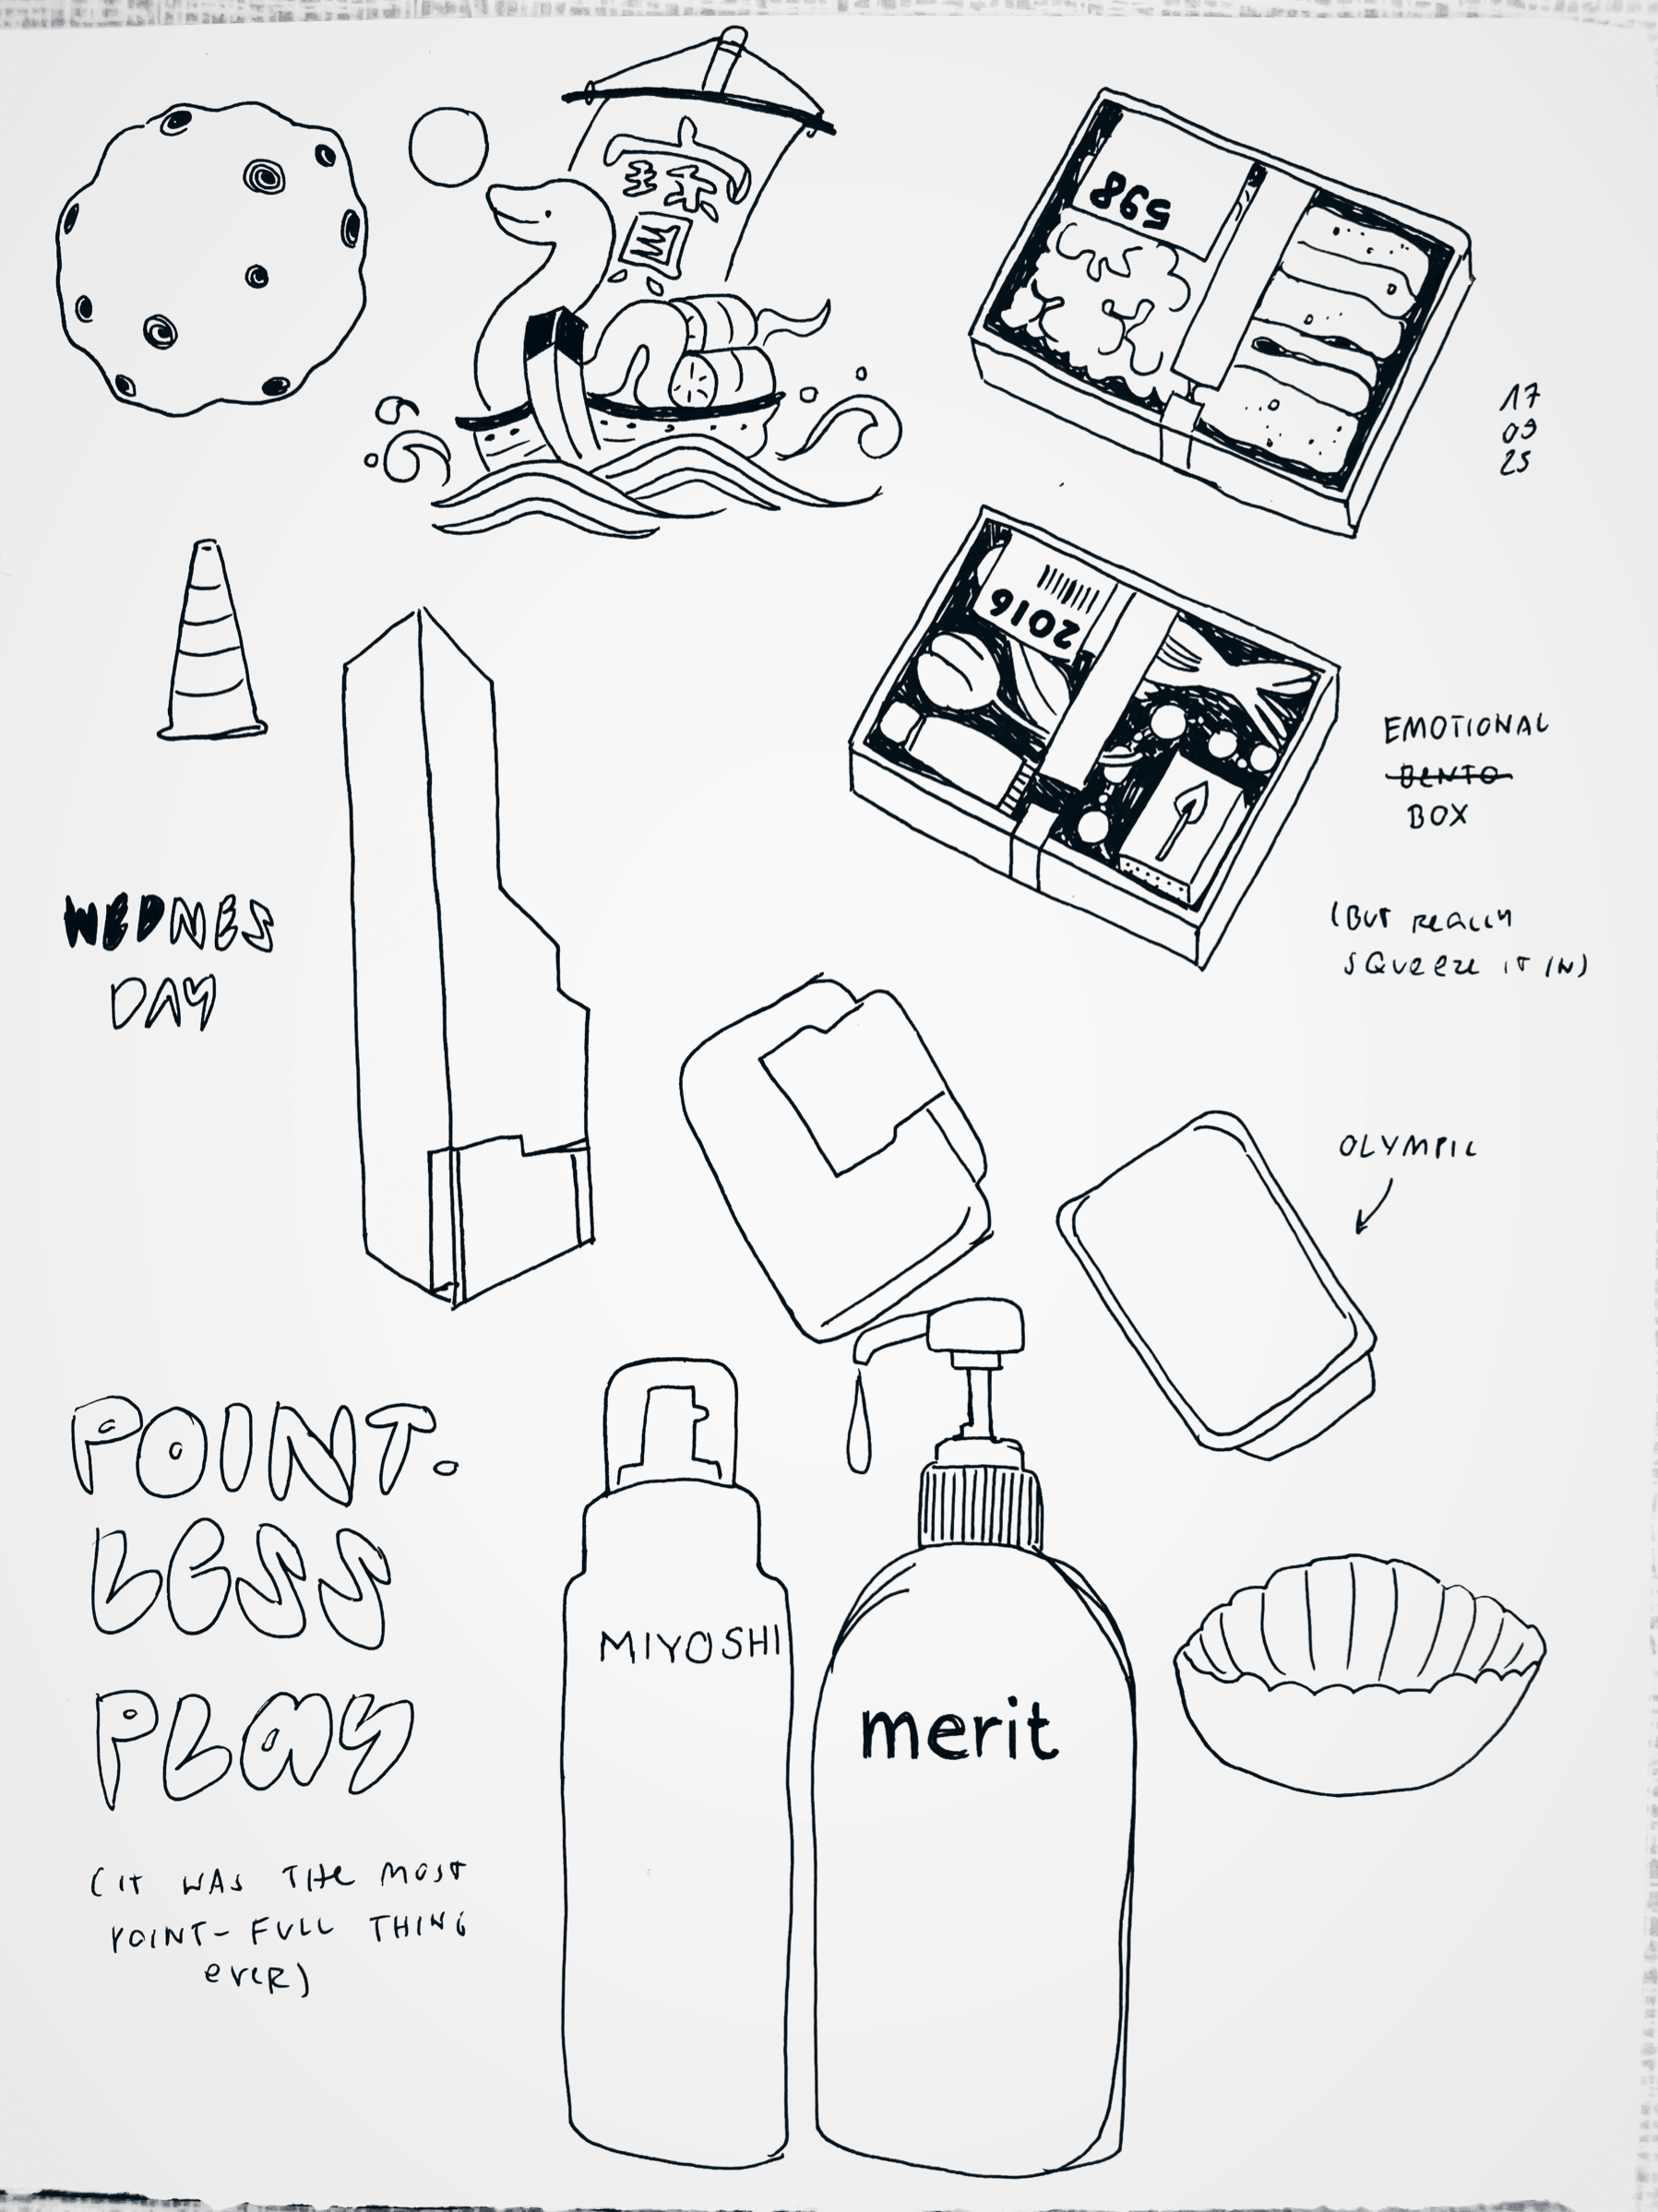 598
17
09
25
2016
EMOTIONAL
BENTO
BOX
(BUT REALLY
SQUEEZE IT IN)
WEDNES
DAY
OLYMPIC
POINT.
LESS
PLAY
(IT WAS THE MOST
POINT-FULL THING
EVER)
MIYOSHI
merit